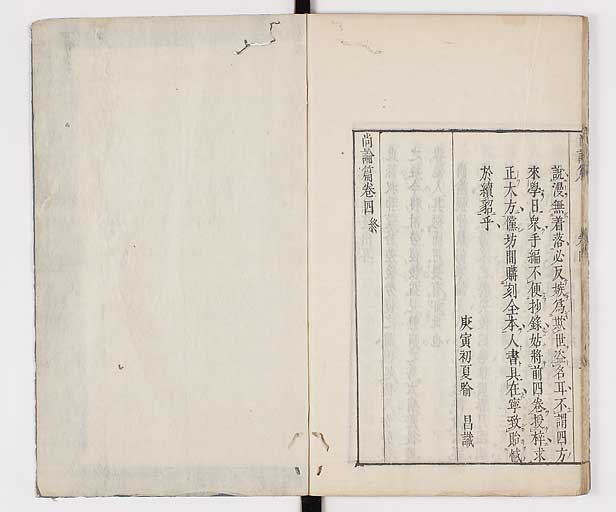 說漫無着落必反嫉爲欺世盜名耳不謂四方
來學日衆手編不便抄錄姑將前四卷授梓求
正大方儻坊間購刻全本人書具在寧致貽憾
於續貂乎
庚寅初夏喻 昌識
尚論篇卷四終